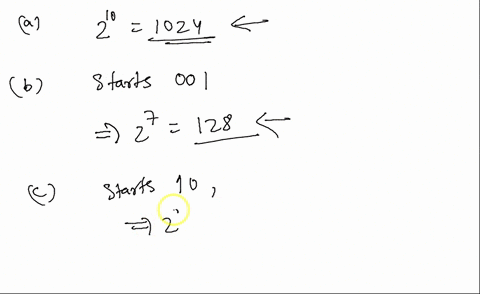 (a) 2^10 = 1024 ←
(b) Starts 001
⇒ 2^7 = 128 ←
(c) Starts 10,
⇒ 2